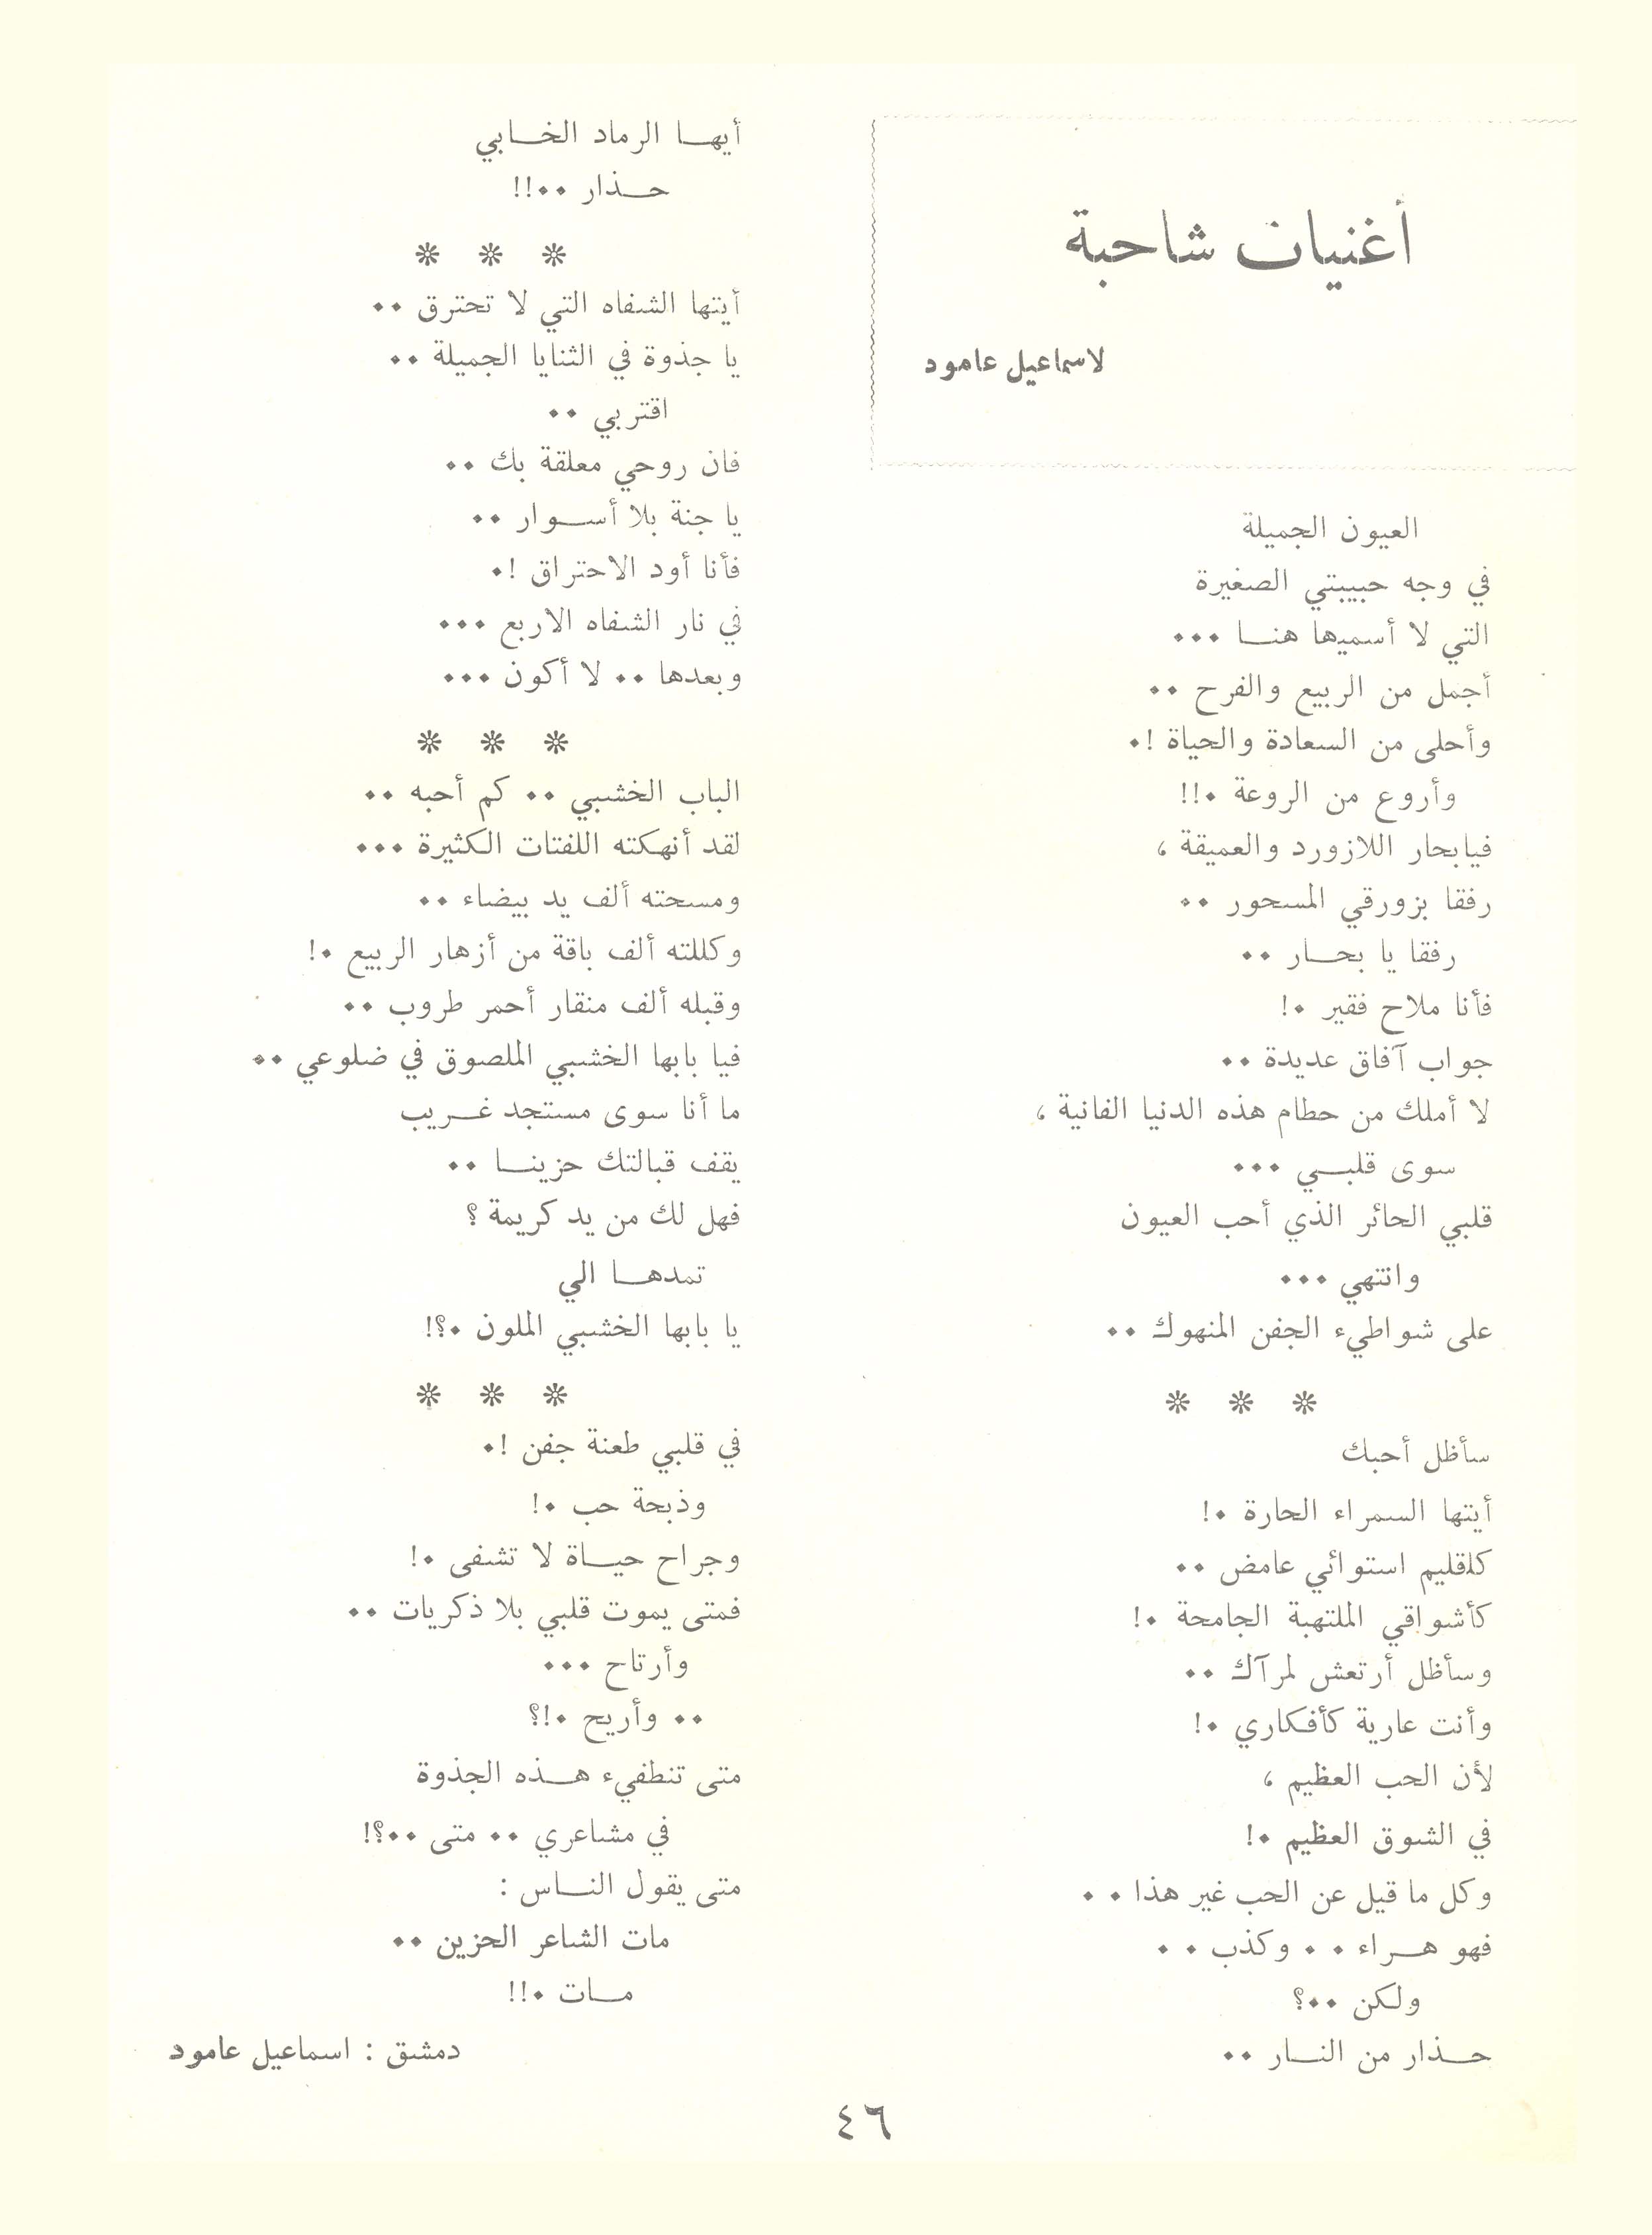 أغنيات شاحبة
لاسماعيل عامود
العيون الجميلة
في وجه حبيبتي الصغيرة
التي لا أسميها هنـا ...
أجمل من الربيع والفرح ..
وأحلى من السعادة والحياة !.
وأروع من الروعة .!!
فيابحار اللازورد والعميقة ،
رفقا بزورقي المسحور ..
رفقا يا بحـار ..
فأنا ملاح فقير .!
جواب آفاق عديدة ..
لا أملك من حطام هذه الدنيا الفانية ،
سوى قلبـي ...
قلبي الحائر الذي أحب العيون
وانتهي ...
على شواطيء الجفن المنهوك ..
* * *
سأظل أحبك
أيتها السمراء الحارة .!
كاقليم استوائي عامض ..
كأشواقي الملتهبة الجامحة .!
وسأظل أرتعش لمرآك ..
وأنت عارية كأفكاري .!
لأن الحب العظيم ،
في الشوق العظيم .!
وكل ما قيل عن الحب غير هذا ..
فهو هـراء .. وكذب ..
ولكن ..؟
حـذار من النـار ..
أيهـا الرماد الخـابي
حـذار ..!!
* * *
أيتها الشفاه التي لا تحترق ..
يا جذوة في الثنايا الجميلة ..
اقتربي ..
فان روحي معلقة بك ..
يا جنة بلا أسـوار ..
فأنا أود الاحتراق !.
في نار الشفاه الاربع ...
وبعدها .. لا أكون ...
* * *
الباب الخشبي .. كم أحبه ..
لقد أنهكته اللفتات الكثيرة ...
ومسحته ألف يد بيضاء ..
وكللته ألف باقة من أزهار الربيع .!
وقبله ألف منقار أحمر طروب ..
فيا بابها الخشبي الملصوق في ضلوعي ..
ما أنا سوى مستجد غـريب
يقف قبالتك حزينـا ..
فهل لك من يد كريمة ؟
تمدهـا الي
يا بابها الخشبي الملون .؟!
* * *
في قلبي طعنة جفن !.
وذبحة حب .!
وجراح حيـاة لا تشفى .!
فمتى يموت قلبي بلا ذكريات ..
وأرتاح ...
.. وأريح .!؟
متى تنطفيء هـذه الجذوة
في مشاعري .. متى ..؟!
متى يقول النـاس :
مات الشاعر الحزين ..
مـات .!!
دمشق : اسماعيل عامود
٤٦